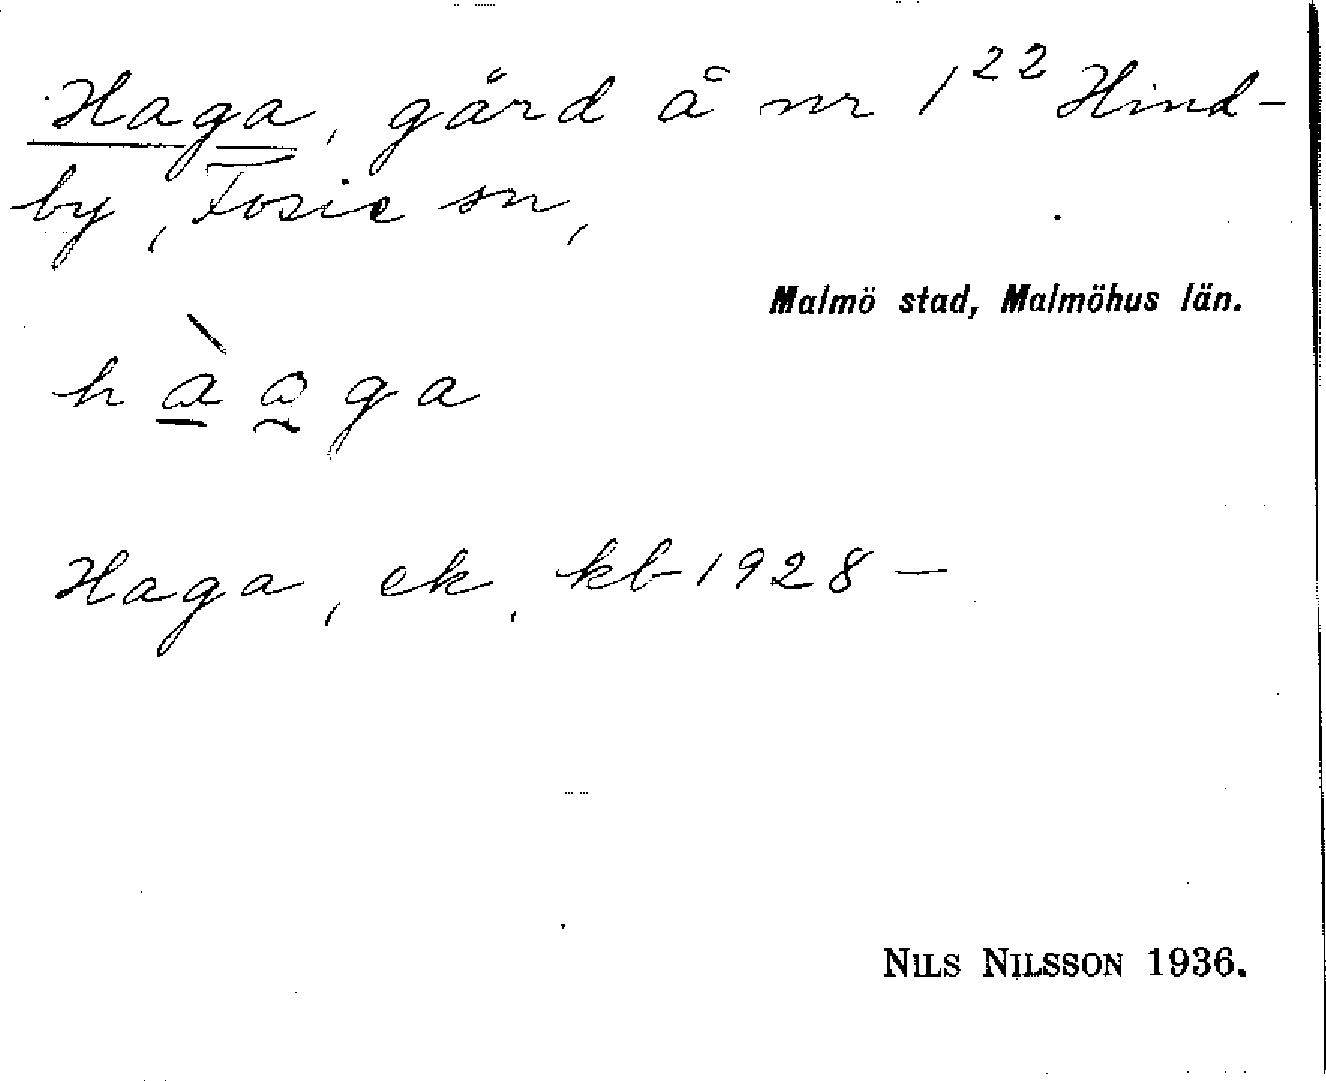 Haga, gård å nr 1²² Hind-
by, Fosie sn,
Malmö stad, Malmöhus län.
h à a g a
Haga, ek. kb 1928 –
NILS NILSSON 1936.